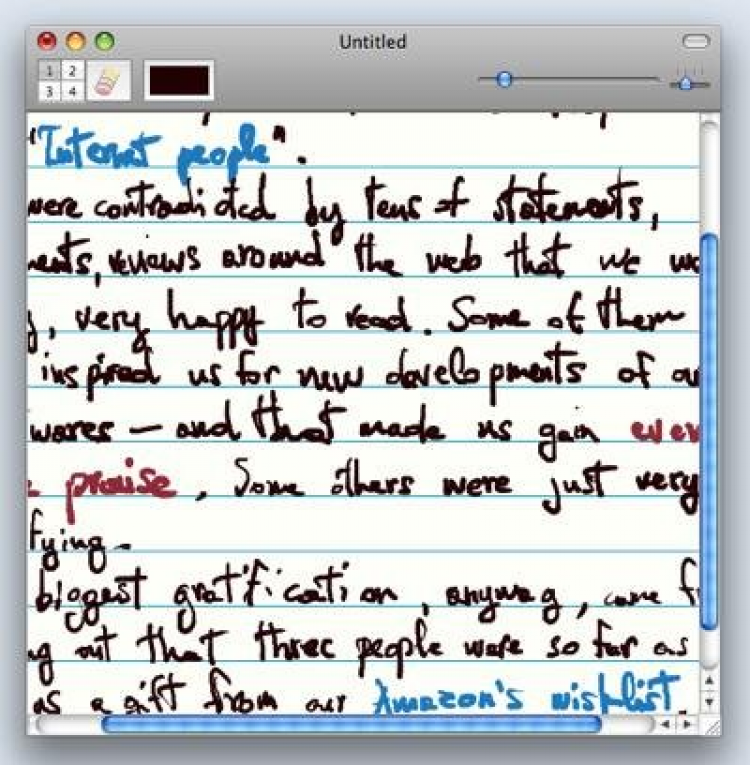 Untitled
1 2
3 4
"Internet people".
were contradicted by tens of statements,
ments, reviews around the web that we we
, very happy to read. Some of them
inspired us for new developments of ou
wares – and that made us gain even
praise, Some others were just very
fying.
biggest gratification, anyway, came f
ng out that three people were so far as
as a gift from our Amazon's wishlist.